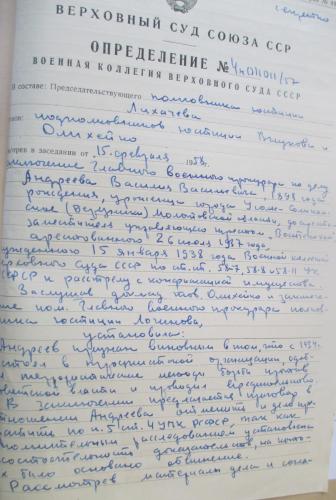 Секретно
ВЕРХОВНЫЙ СУД СОЮЗА ССР
ОПРЕДЕЛЕНИЕ №
ВОЕННАЯ КОЛЛЕГИЯ ВЕРХОВНОГО СУДА СССР
составе: Председательствующего полковника юстиции
Лихачева
подполковников юстиции и
Олихейко
в заседании от 15 февраля 1958
заключение Главного Военного прокурора по делу
Андреева Василия Васильевича, 1898 года
рождения, уроженца города
Молотовской области, до ареста
заместителя управляющего трестом
арестованного 26 июля 1937 года,
15 января 1938 года Военной коллегией
Верховного Суда СССР по ст.ст. 58-7, 58-8 и 58-11 УК
РСФСР к расстрелу с конфискацией имущества.
Заслушав доклад тов. Олихейко и заключе-
ние пом. Главного Военного прокурора полков-
ника юстиции
установила:
Андреев признан виновным в том, что с 1934
состоял в террористической организации,
террористические методы борьбы против
советской власти и проводил вредительство.
В заключении предлагается приговор в
отношении Андреева отменить и дело пре-
кратить по п. 5 ст. 4 УПК РСФСР, так как
дополнительным расследованием установлена
несостоятельность доказательств, на кото-
было основано обвинение.
Рассмотрев материалы дела и